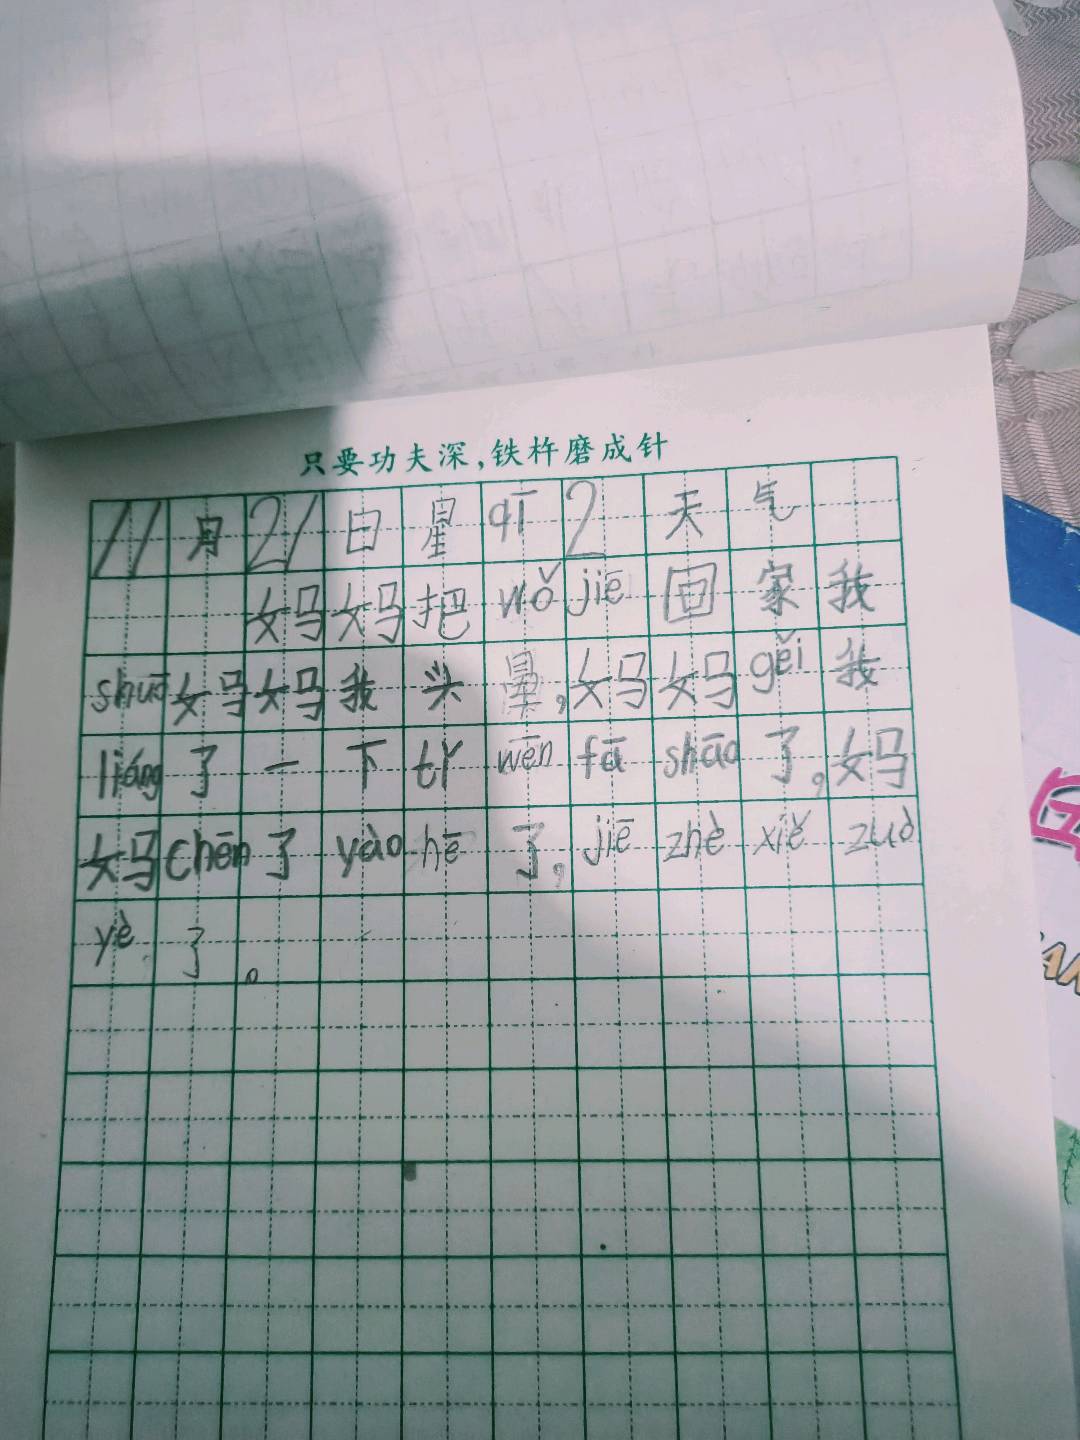 只要功夫深,铁杵磨成针
11月21日星qī2天气
妈妈把wǒjiē回家我
shuō妈妈我头晕,妈妈gěi我
liáng了一下tǐwēnfāshāo了,妈
妈chēn了yàohē了,jiēzhèxiězuò
yè了。